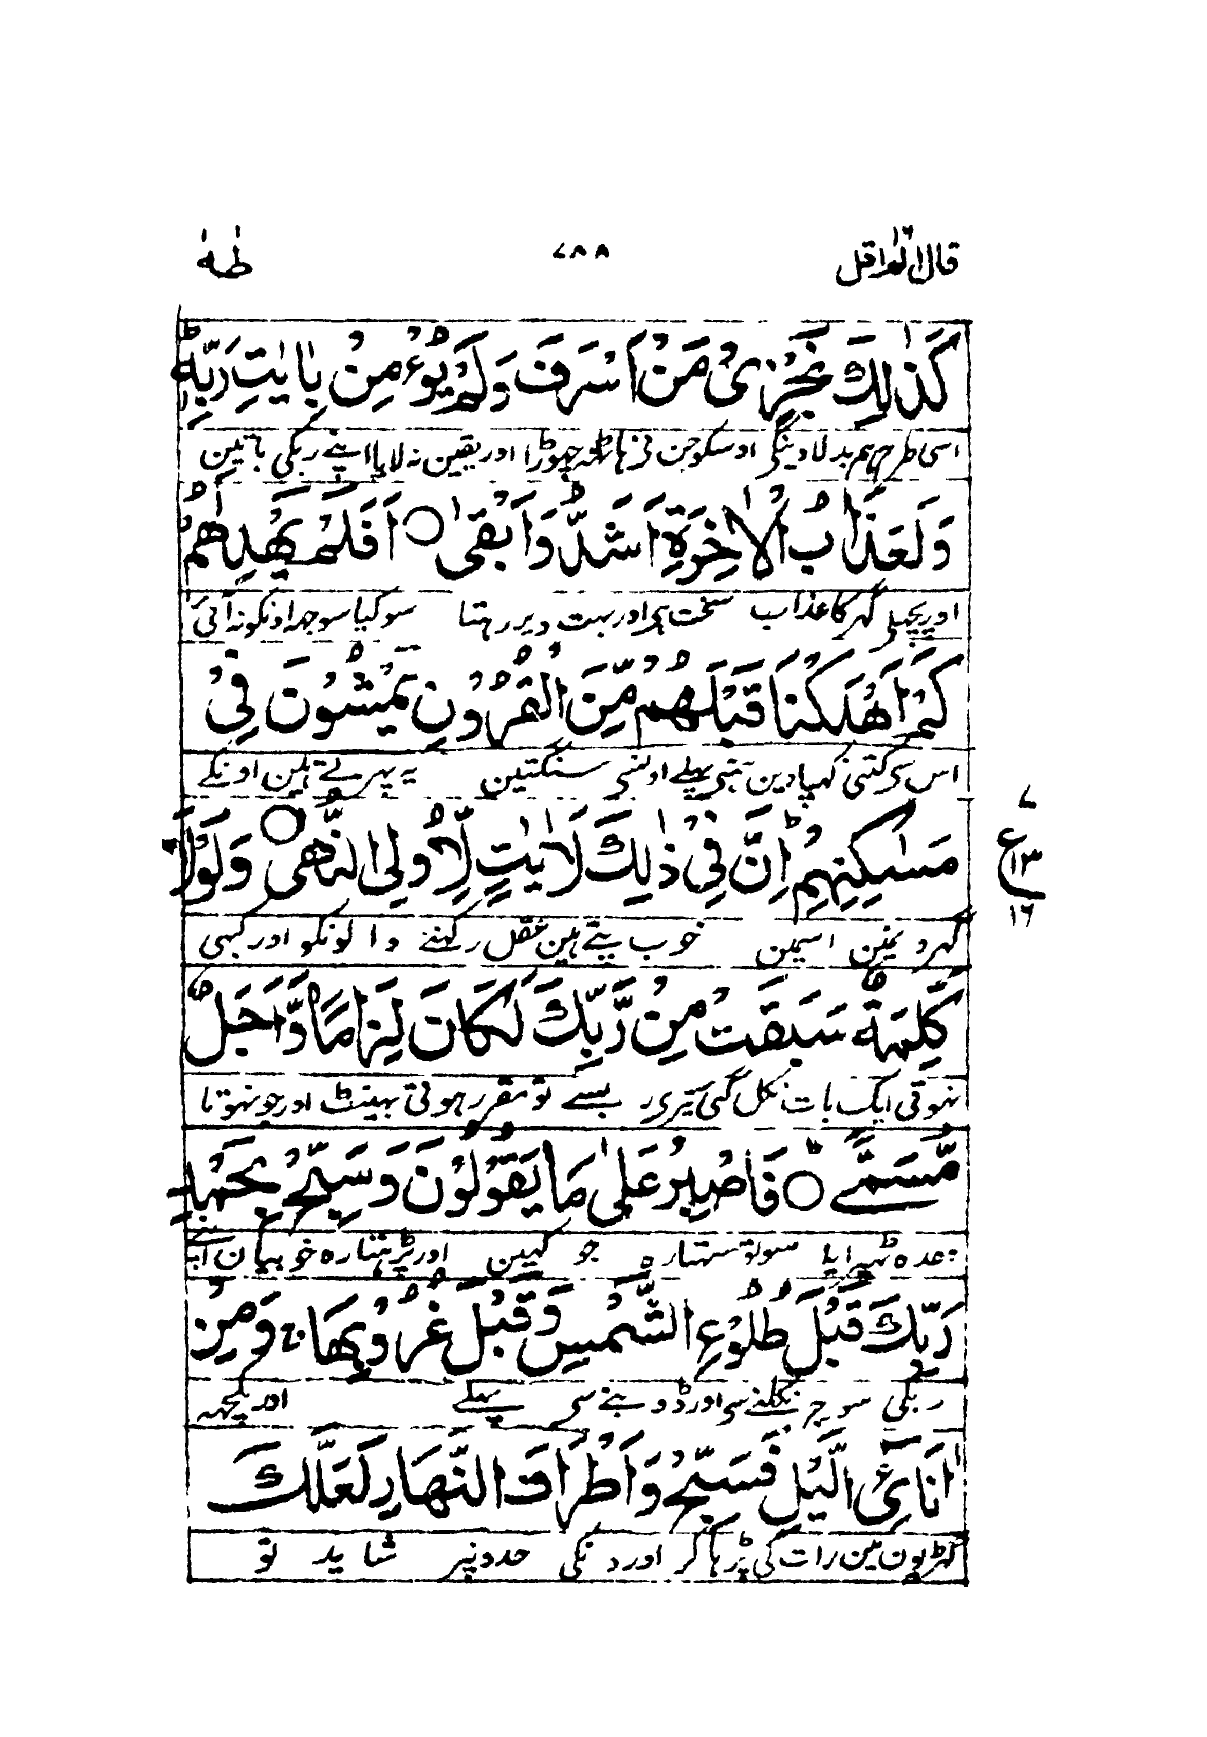 قال الم اقل ١٦ ٧٨٨ طٰهٰ
كَذٰلِكَ نَجْزِىْ مَنْ اَسْرَفَ وَلَمْ يُؤْمِنْ بِاٰيٰتِ رَبِّهٖ ط
اسی طرح ہم بدلا دینگے اوسکو جن نے ہاتھ چھوڑا اور یقین نہ لایا اپنے ربکی باتین
وَلَعَذَابُ الْاٰخِرَةِ اَشَدُّ وَاَبْقٰى ○ اَفَلَمْ يَهْدِ لَهُمْ
اور پچھلے گھر کا عذاب سخت ہے اور بہت دیر رہتا سو کیا سوجھ اونکو نہ آئی
كَمْ اَهْلَكْنَا قَبْلَهُمْ مِّنَ الْقُرُوْنِ يَمْشُوْنَ فِىْ
اس سے کتنی کھپا دین ہمنے پہلے اونسے سنگتین یہ پھرتے ہین اونکے
مَسٰكِنِهِمْ ط اِنَّ فِىْ ذٰلِكَ لَاٰيٰتٍ لِّاُولِى النُّهٰى ○ وَلَوْلَا
گھرو نمین اسمین خوب پتے ہین عقل رکھنے وا لونکو اور کبھی
٧ ع ١٣ ١٦
كَلِمَةٌ سَبَقَتْ مِنْ رَّبِّكَ لَكَانَ لِزَامًا وَّاَجَلٌ
نہوتی ایک بات نکل گئی تیرے ر بسے تو مقرر ہوتی بھینٹ اور جو نہوتا
مُّسَمًّى ○ ط فَاصْبِرْ عَلٰى مَا يَقُوْلُوْنَ وَسَبِّحْ بِحَمْدِ
وعدہ ٹھہرایا سو تو سہتا رہ جو کہین اور پڑہتا رہ خوبیان اپنے
رَبِّكَ قَبْلَ طُلُوْعِ الشَّمْسِ وَقَبْلَ غُرُوْبِهَا ج وَمِنْ
ربکی سورج نکلنے سے اور ڈوبنے سے پہلے اور کچھہ
اٰنَآئِ الَّيْلِ فَسَبِّحْ وَاَطْرَافَ النَّهَارِ لَعَلَّكَ
گھڑیون مین رات کی پڑہا کر اور دنکی حدونپر شاید تو